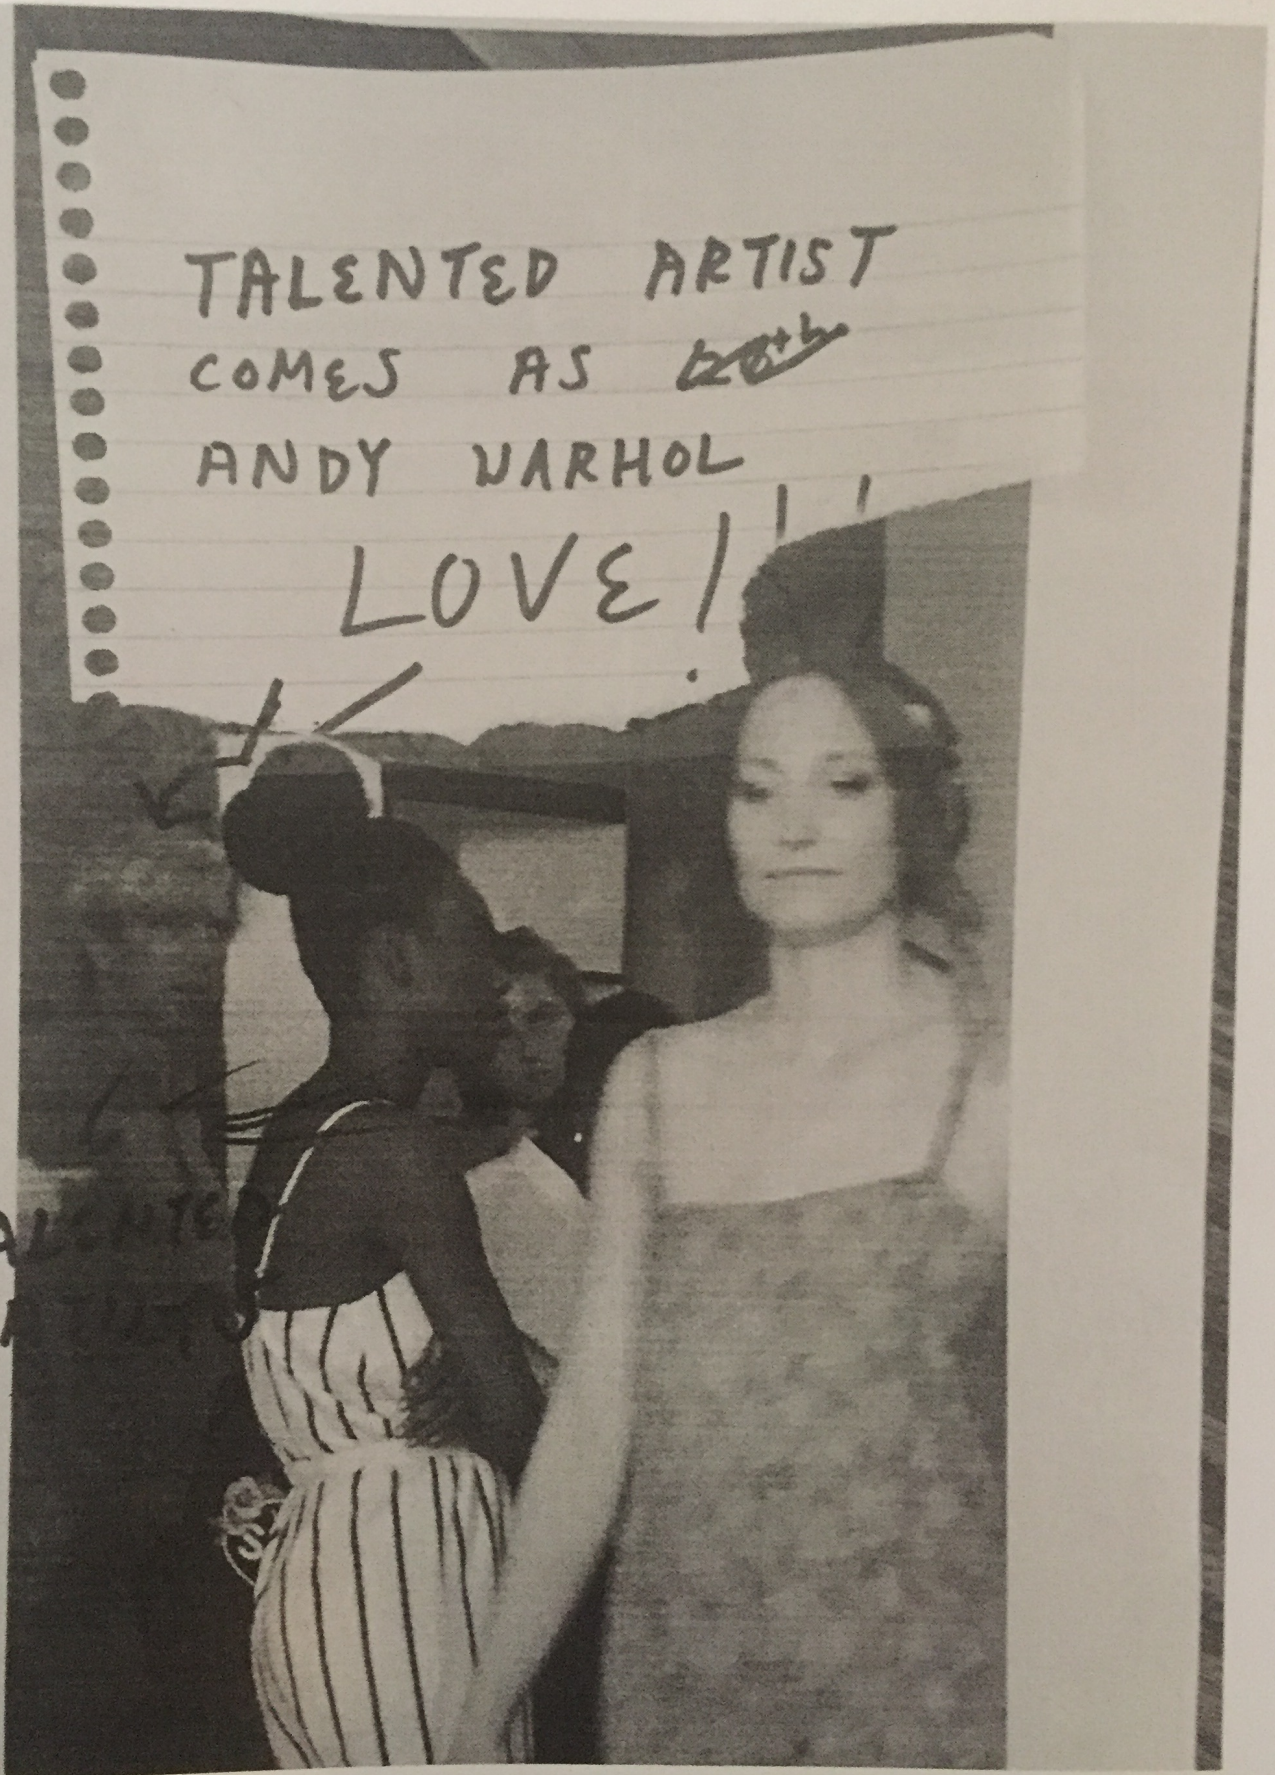 TALENTED ARTIST
COMES AS
ANDY WARHOL
LOVE!
ALENTED